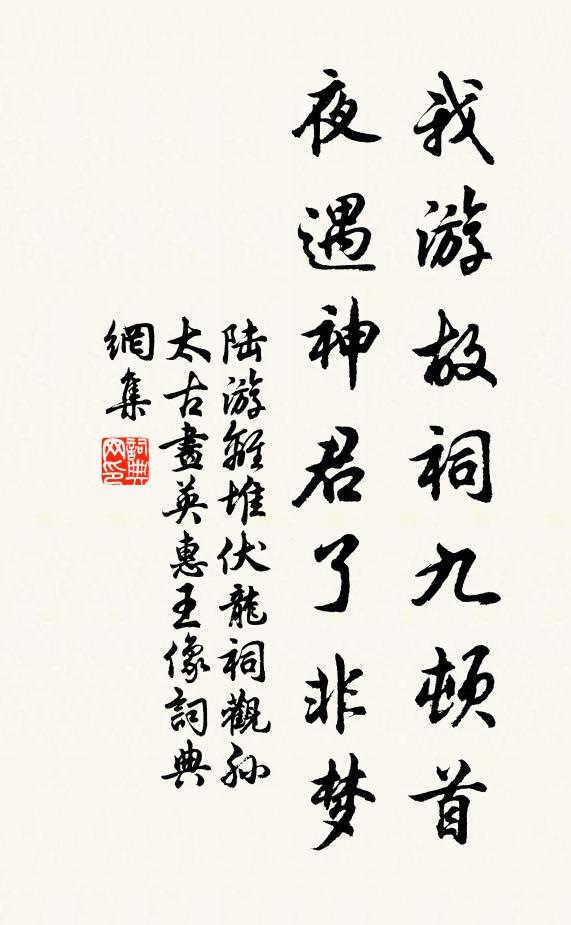 我游故祠九顿首
夜遇神君了非梦
陆游離堆伏龍祠觀孙
太古畫英惠王像詞典
網集
詞典
网印